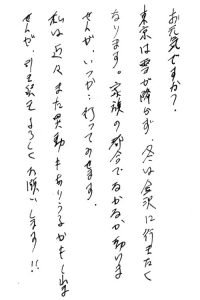 お元気ですか?
東京は雪が降らず、冬は金沢に行きたく
なります。家族の都合でなかなか動けま
せんが、いつか…行ってみせます。
私は近々また異動もありうるかもしれま
せんが、引き続きよろしくお願いします!!